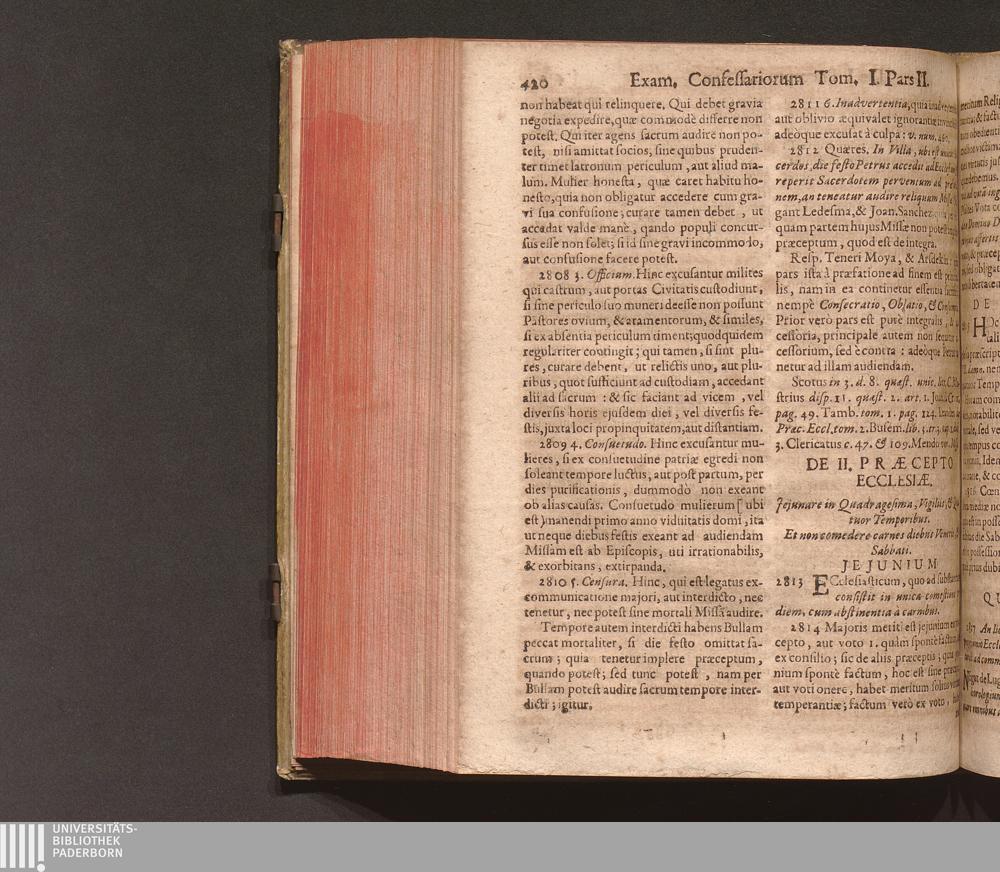 420 Exam. Confessariorum Tom. I. Pars II.
non habeat qui relinquere. Qui debet gravia
negotia expedire, quæ commodè differre non
potest. Qui iter agens sacrum audire non po-
test, nisi amittat socios, sine quibus pruden-
ter timet latronum periculum, aut aliud ma-
lum. Mulier honesta, quæ caret habitu ho-
nesto, quia non obligatur accedere cum gra-
vi sua confusione; curare tamen debet, ut
accedat valde manè, qando populi concur-
sus esse non solet; si id sine gravi incommodo,
aut confusione facere potest.
2808 3. Officium. Hinc excusantur milites
qui castrum, aut portas Civitatis custodiunt,
si sine periculo suo muneri deesse non possunt
Pastores ovium, & atamentorum, & similes,
si ex absentia periculum timent; quod quidem
regulariter contingit; qui tamen, si sint plu-
res, curare debent, ut relictis uno, aut plu-
ribus, quot sufficiunt ad custodiam, accedant
alii ad sacrum: & sic faciant ad vicem, vel
diversis horis ejusdem diei, vel diversis fe-
stis, juxta loci propinquitatem, aut distantiam.
2809 4. Consuetudo. Hinc excusantur mu-
lieres, si ex consuetudine patriæ egredi non
soleant tempore luctus, aut post partum, per
dies purificationis, dummodò non exeant
ob alias causas. Consuetudo mulierum [ubi
est) manendi primo anno viduitatis domi, ita
ut neque diebus festis exeant ad audiendam
Missam est ab Episcopis, uti irrationabilis,
& exorbitans, extirpanda.
2810 5. Censura. Hinc, qui est legatus ex-
communicatione majori, aut interdicto, nec
tenetur, nec potest sine mortali Missã audire.
Tempore autem interdicti habens Bullam
peccat mortaliter, si die festo omittat sa-
crum; quia tenetur implere præceptum,
quando potest; sed tunc potest, nam per
Bullam potest audire sacrum tempore inter-
dicti; igitur.
2811 6. Inadvertentia, quia
aut oblivio æquivalet ignorantiæ
adeòque excusat à culpa: v. num.
2812 Quæres. In Villa, ubi est
cerdos, die festo Petrus accedit ad
reperit Sacerdotem perventum ad
nem, an teneatur audire reliquum
gant Ledesma, & Joan. Sanchez
quam partem hujus Missæ non potest
præceptum, quod est de integra.
Resp. Teneri Moya, & Arsdekin:
pars ista à præfatione ad finem est
lis, nam in ea continetur essentia
nempè Consecratio, Oblatio, &
Prior verò pars est purè integralis,
cessoria, principale autem non sequitur
cessorium, sed è contra: adeòque
netur ad illam audiendam.
Scotus in 3. d. 8. quæst. unic.
strius disp. 11. quæst. 2. art. 1.
pag. 49. Tamb. tom. 1. pag. 124.
Præc. Eccl. tom. 2. Busem. lib. 3. tr. 3.
3. Clericatus c. 47. & 109. Mendo
DE II. PRÆCEPTO
ECCLESIÆ.
Jejunare in Quadragesima, Vigiliis, &
tuor Temporibus.
Et non comedere carnes diebus Veneris,
Sabbati.
JEJUNIUM
2813 ECclesiasticum, quo ad substantiam
consistit in unica comestione
diem, cum abstinentia à carnibus.
2814 Majoris metiti est jejunium
cepto, aut voto 1. quàm spontè factum
ex consilio; sic de aliis præceptis;
nium spontè factum, hoc est sine
aut voti onere, habet meritum solius
temperantiæ; factum verò ex voto,
UNIVERSITÄTS-
BIBLIOTHEK
PADERBORN